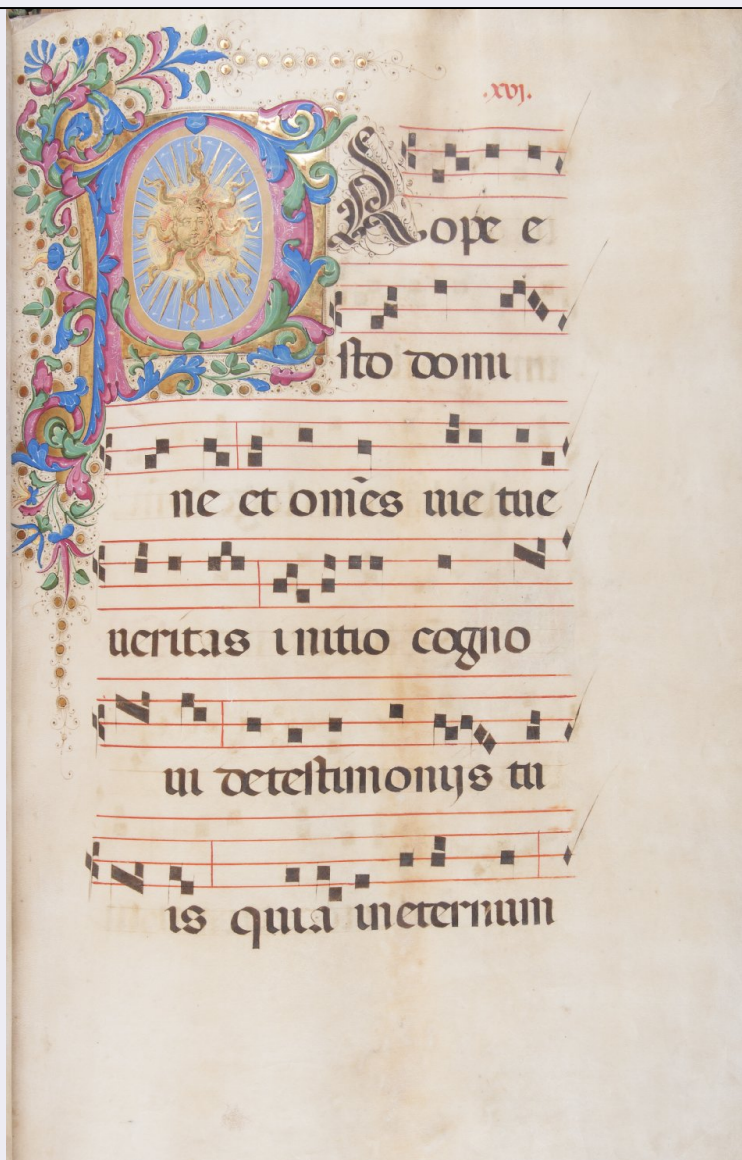 .xvj.
PRope e
sto domi
ne et om̃es uie tue
ueritas initio cogno
ui de testimonijs tu
is quia in eternum